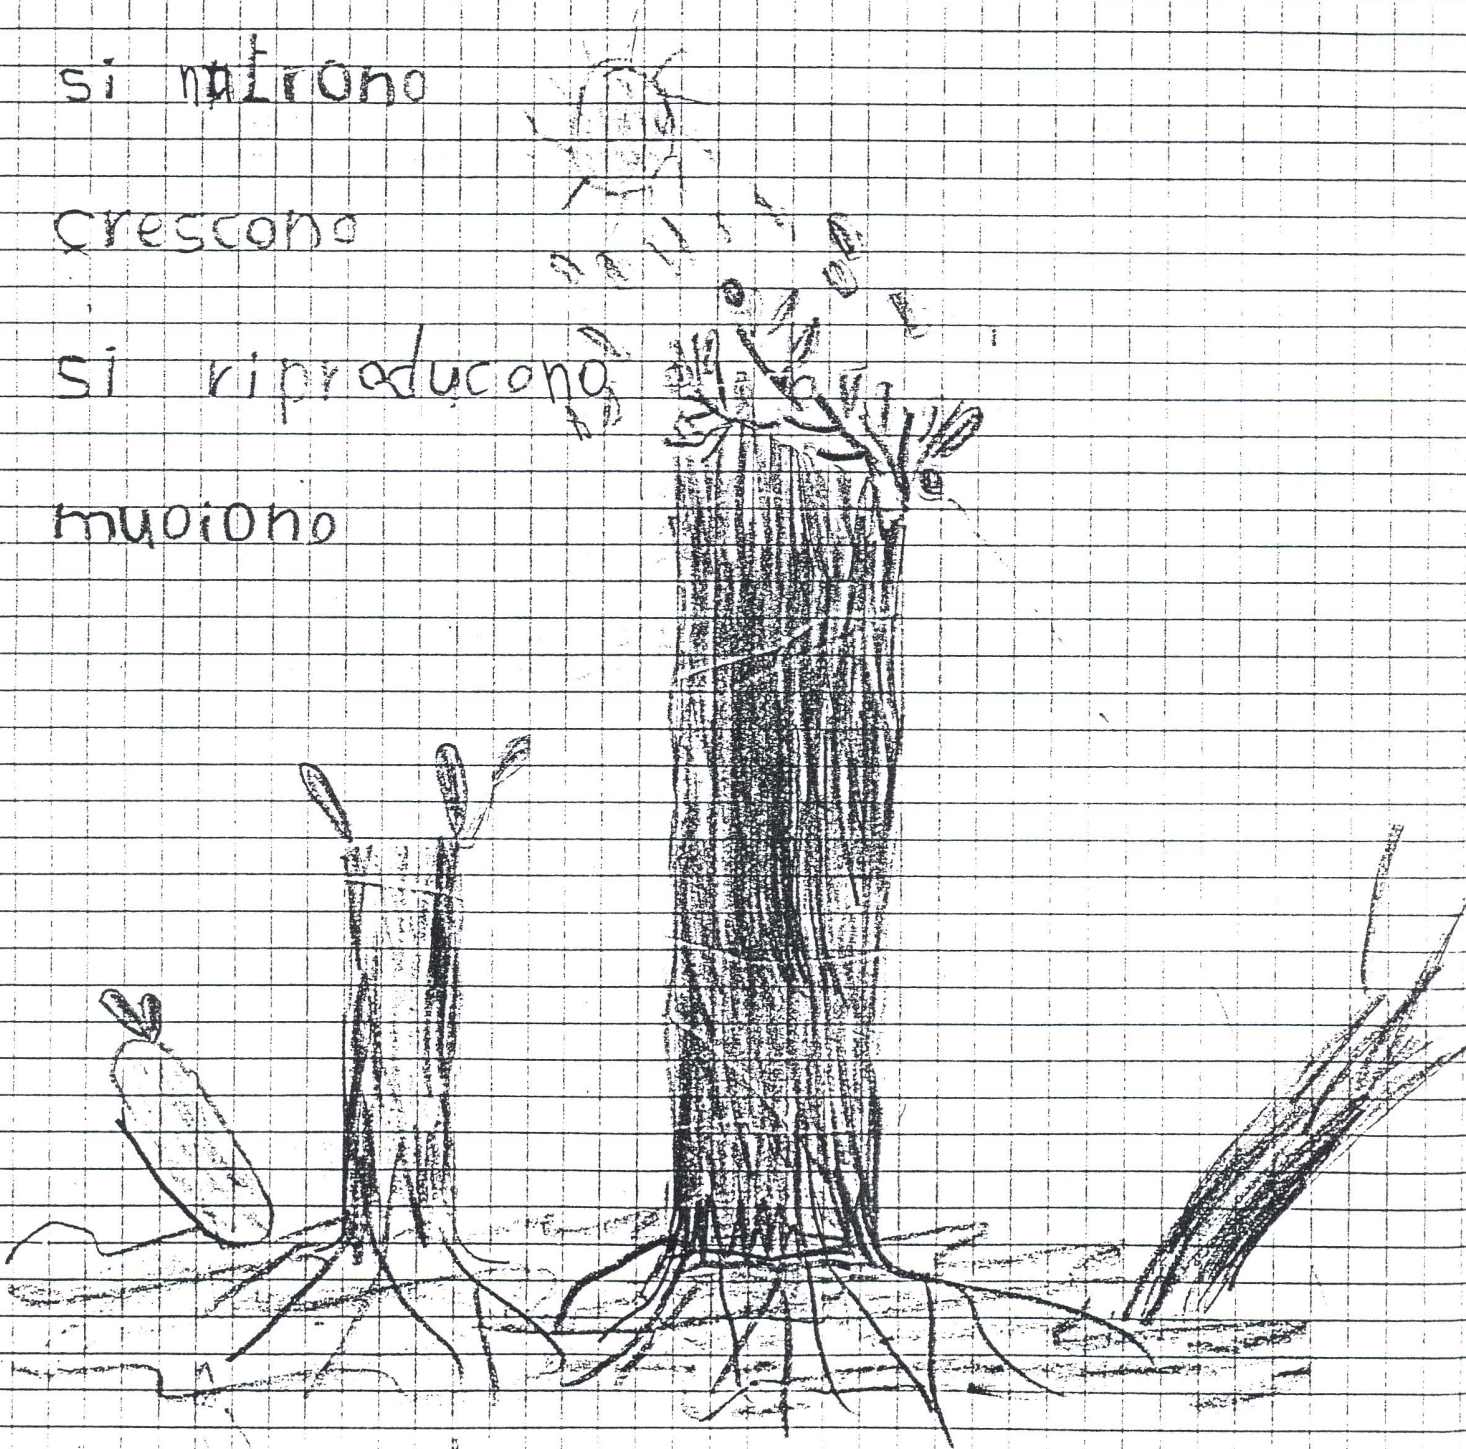 si nutrono
crescono
si riproducono
muoiono